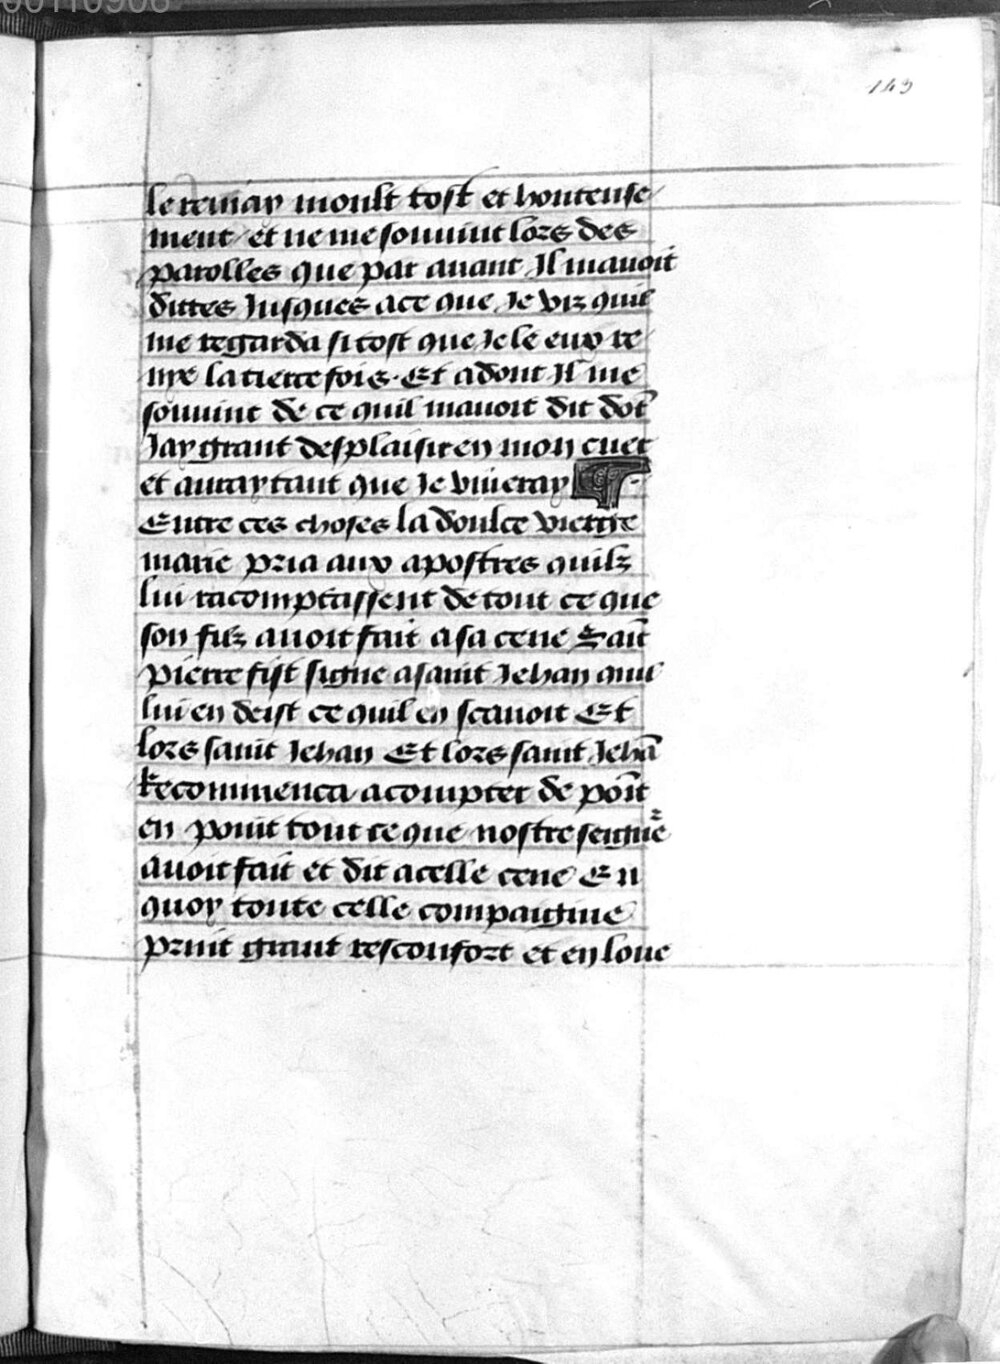 00110908
143
le reniay moult tost et honteuse
ment et ne me souuint lors des
parolles que par auant Il mauoit
dittes Jusques ace que Je viz quil
me regarda si tost que Je le euv re
nye la tierce fois. Et adont Il me
souuint de ce quil mauoit dit dōt
Jay grant desplaisir en mon cuer
et auray tant que Je viueray
Entre ces choses la doulce vierge
marie pria aux apostres quilz
lui racomptassent de tout ce que
son filz auoit fait a sa cene Sait
pierre fist signe a saint Jehan quil
lui en deist ce quil en scauoit Et
lors saint Jehan Et lors saint Jehā
Recommenca a compter de poīt
en point tout ce que nostre seigne᷑
auoit fait et dit a celle cene En
quoy toute celle compaignie
print grant resconfort et en loue